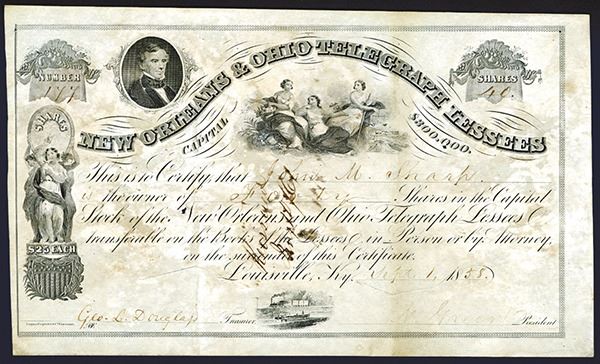 NUMBER
177
NEW ORLEANS & OHIO TELEGRAPH LESSEES
SHARES
40.
CAPITAL
$300,000.
SHARES
$25 EACH
This is to Certify, that M. Sharp
is the owner of Forty Shares in the Capital
Stock of the New Orleans and Ohio Telegraph Lessees
transferable on the Books of the Lessees in Person or by Attorney,
on the surrender of this Certificate.
Louisville, Ky. Sept. 1, 1858
Geo. L. Douglass Trustee
President